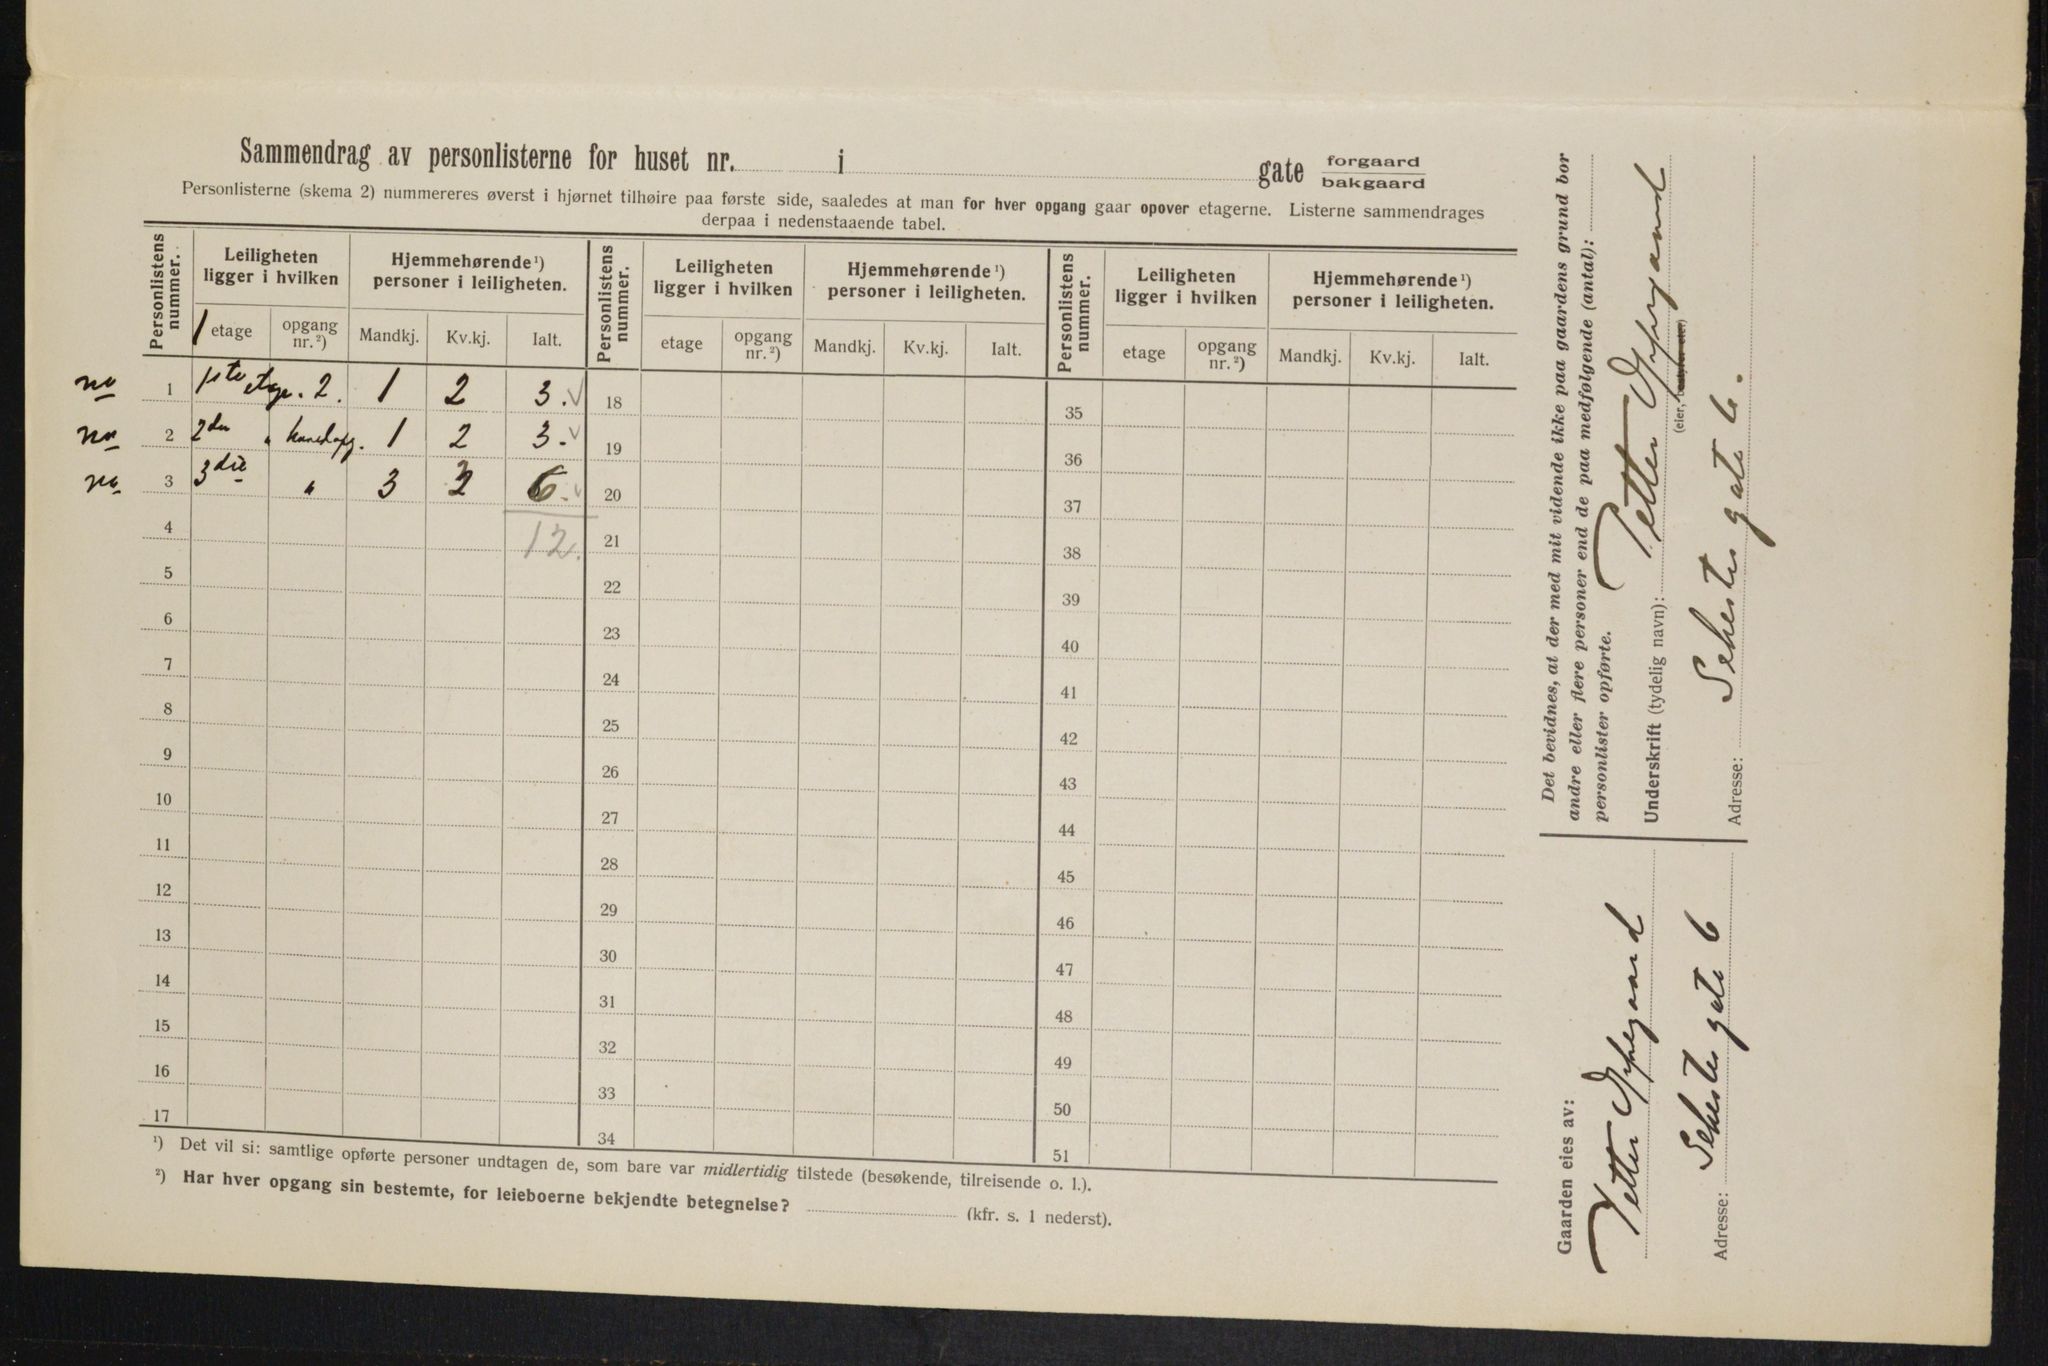 Sammendrag av personlisterne for huset nr. i gate forgaard
bakgaard
Personlisterne (skema 2) nummereres øverst i hjørnet tilhøire paa første side, saaledes at man for hver opgang gaar opover etagerne. Listerne sammendrages
derpaa i nedenstaaende tabel.
Personlistens nummer. Leiligheten ligger i hvilken Hjemmehørende ¹) personer i leiligheten. Personlistens nummer. Leiligheten ligger i hvilken Hjemmehørende ¹) personer i leiligheten. Personlistens nummer. Leiligheten ligger i hvilken Hjemmehørende ¹) personer i leiligheten.
etage opgang nr. ²) Mandkj. Kv.kj. Ialt. etage opgang nr. ²) Mandkj. Kv.kj. Ialt. etage opgang nr. ²) Mandkj. Kv.kj. Ialt.
no 1 1ste etage. 2. 1 2 3. 18 35
no 2 2den " 1 2 3. 19 36
no 3 3die " 3 6. 20 37
4 12. 21 38
5 22 39
6 23 40
7 24 41
8 25 42
9 26 43
10 27 44
11 28 45
12 29 46
13 30 47
14 31 48
15 32 49
16 33 50
17 34 51
¹) Det vil si: samtlige opførte personer undtagen de, som bare var midlertidig tilstede (besøkende, tilreisende o. l.).
²) Har hver opgang sin bestemte, for leieboerne bekjendte betegnelse? (kfr. s. 1 nederst).
Det bevidnes, at der med mit vidende ikke paa gaardens grund bor
andre eller flere personer end de paa medfølgende (antal):
personlister opførte.
Underskrift (tydelig navn): Petter Oppegaard
(eier, bestyrer eller)
Adresse: Sehesteds gate 6.
Gaarden eies av: Petter Oppegaard
Adresse: Sehesteds gate 6